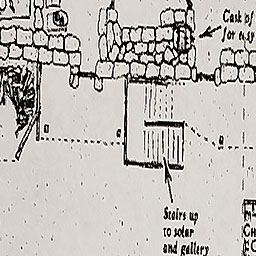 Cask of
for
Stairs up
to solar
and gallery